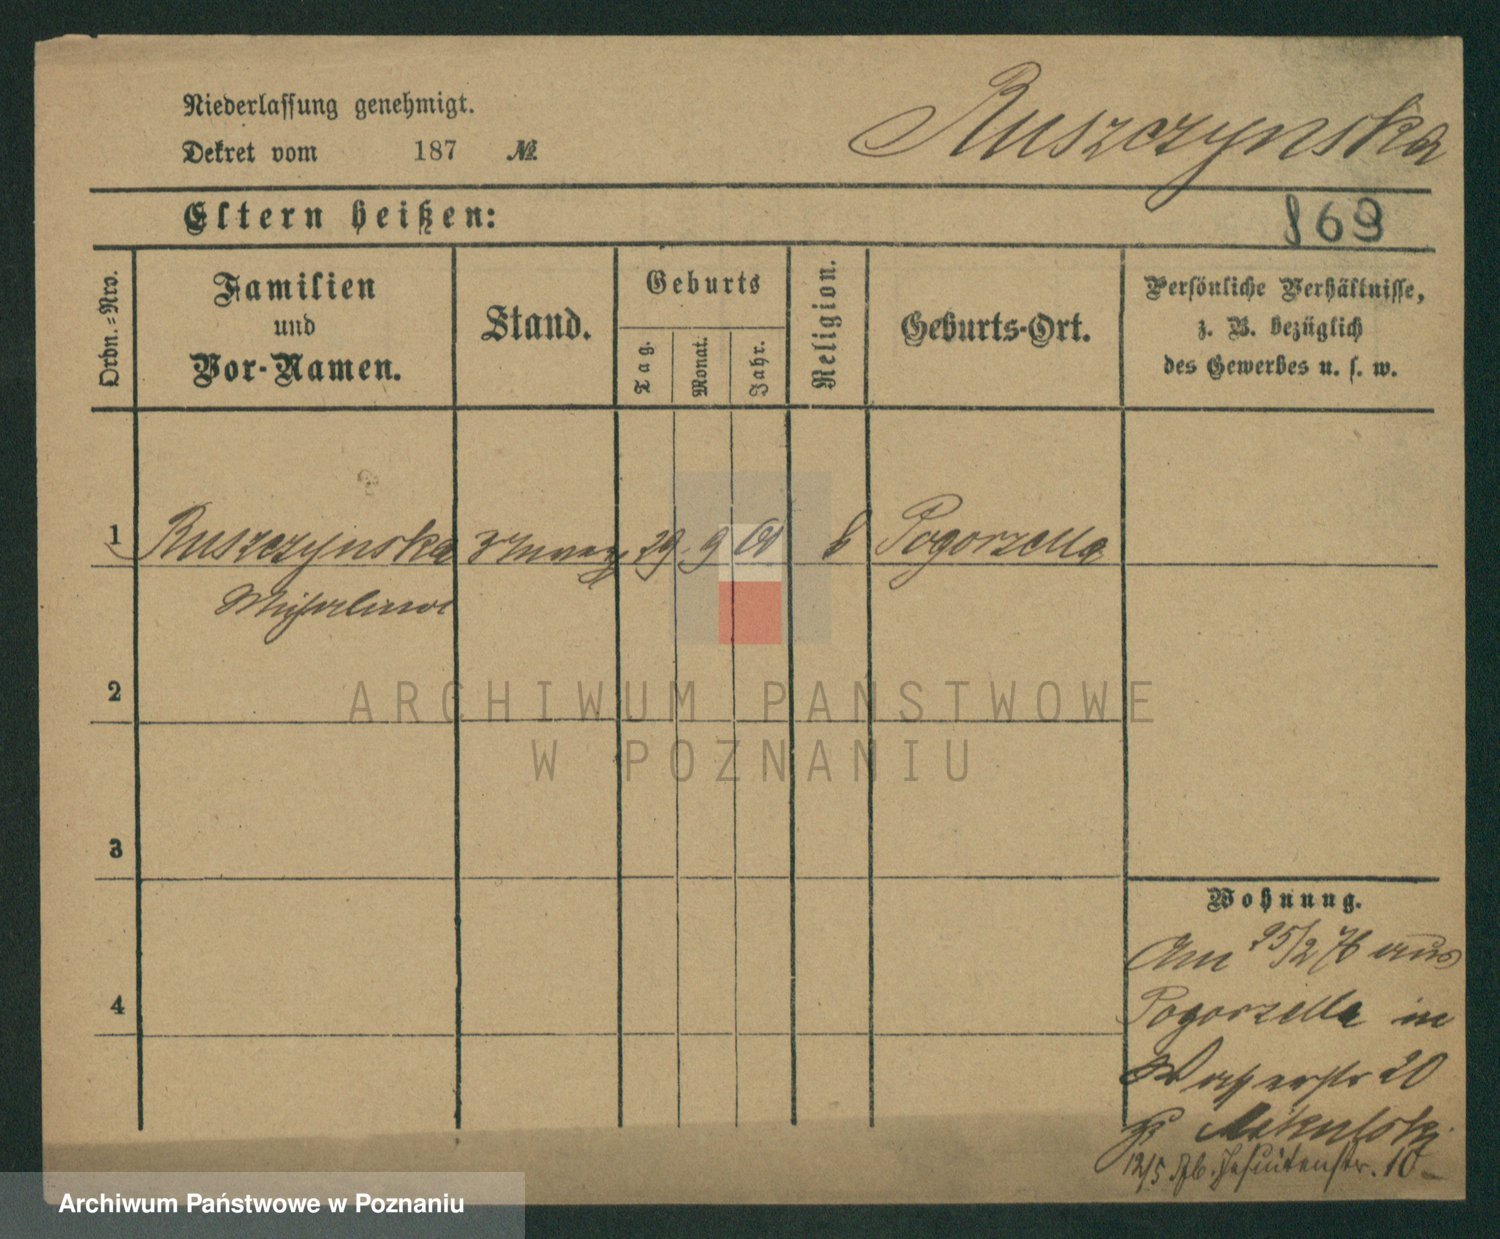 Niederlassung genehmigt.
Ruszczynska
Dekret vom 187 №
Eltern heißen:
869
Ordn.=Nro.
Familien
und
Vor-Namen.
Stand.
Geburts
Tag.
Monat.
Jahr.
Religion.
Geburts-Ort.
Persönliche Verhältnisse,
z. B. bezüglich
des Gewerbes u. s. w.
1 Ruszczynska 29 9 61 Pogorzella
2
3
4
Wohnung.
Am 25/2 76 aus
Pogorzella in
Wasserstr 20
Mikulski
12/5 Jesuitenstr. 10
ARCHIWUM PAŃSTWOWE
W POZNANIU
Archiwum Państwowe w Poznaniu